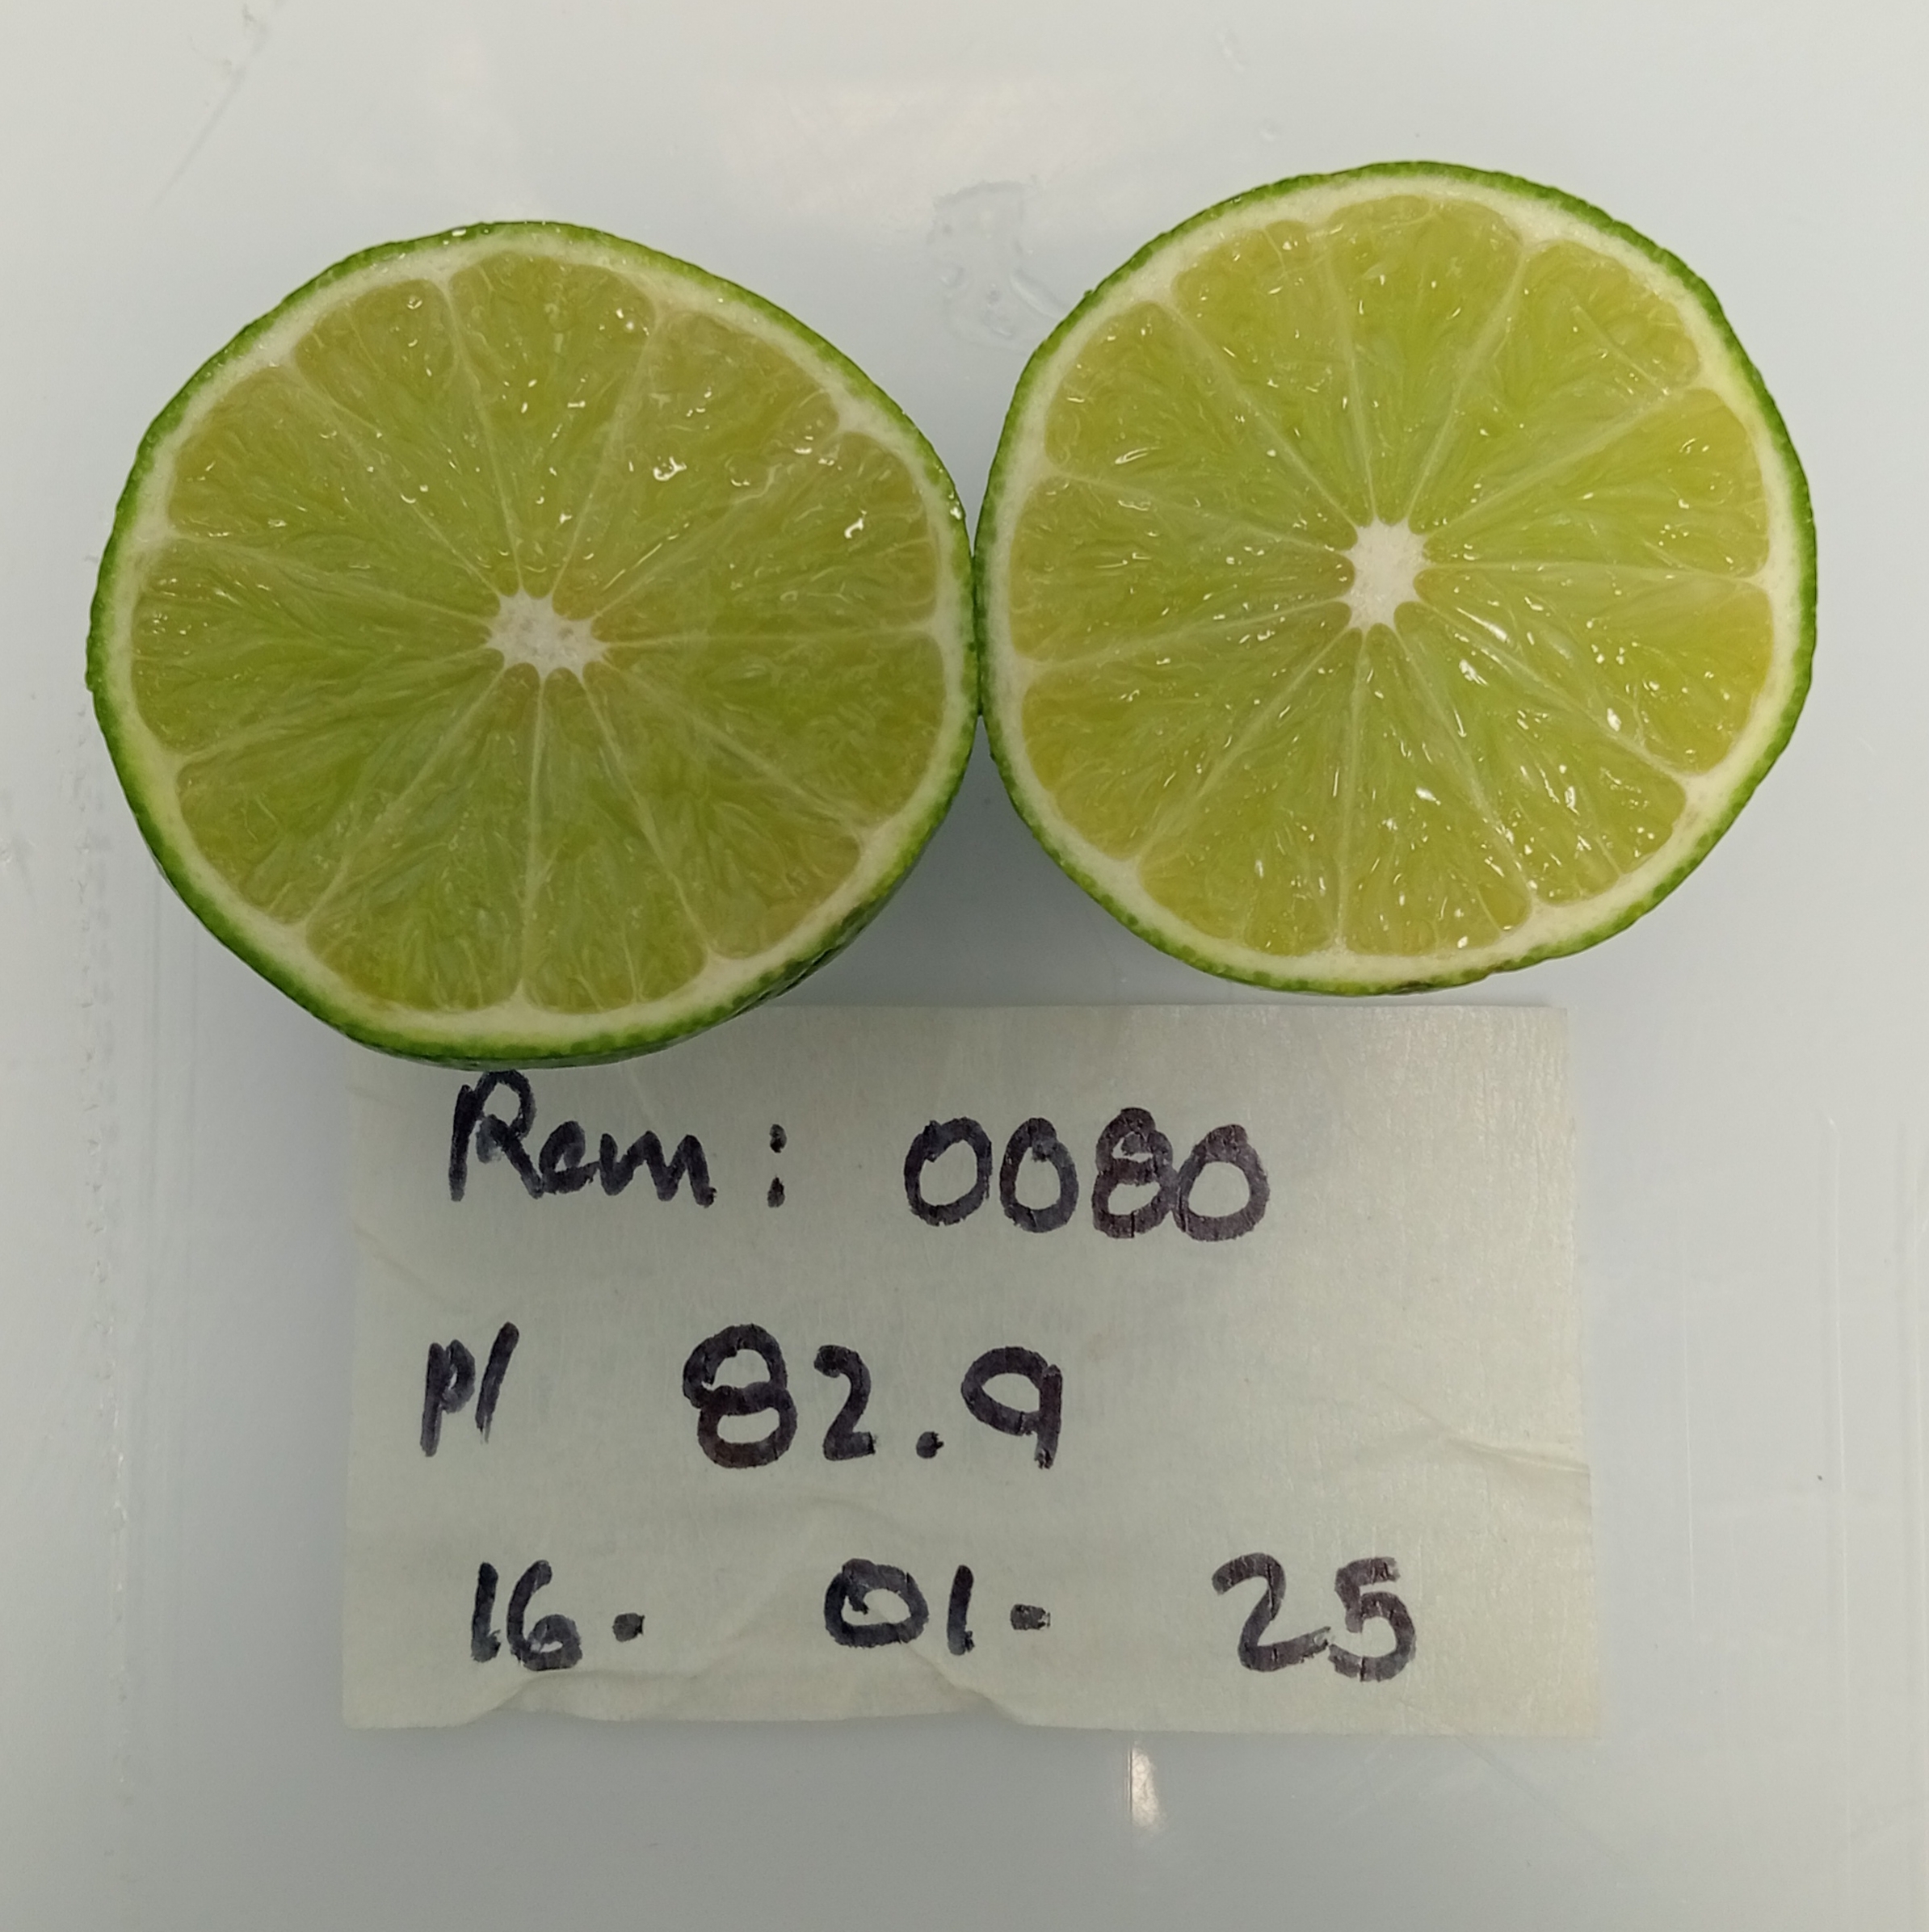 Rem: 0080
P/ 82.9
16. 01- 25